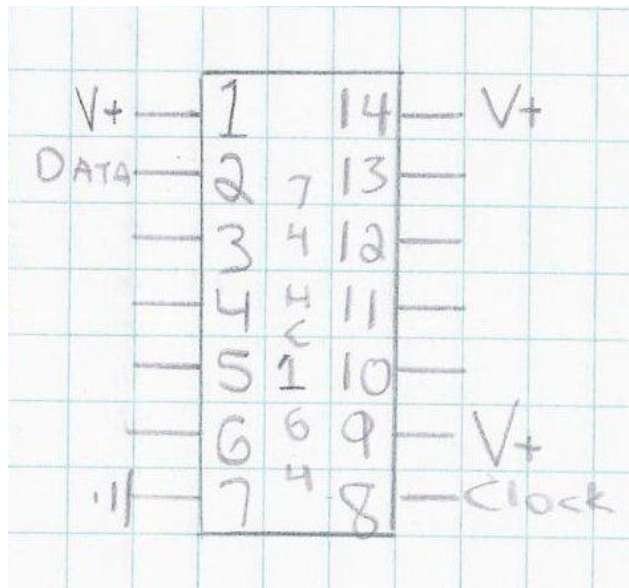 V+ 1 14 V+
DATA 2 13
3 12
4 11
5 10
6 9 V+
7 8 Clock
74HC164